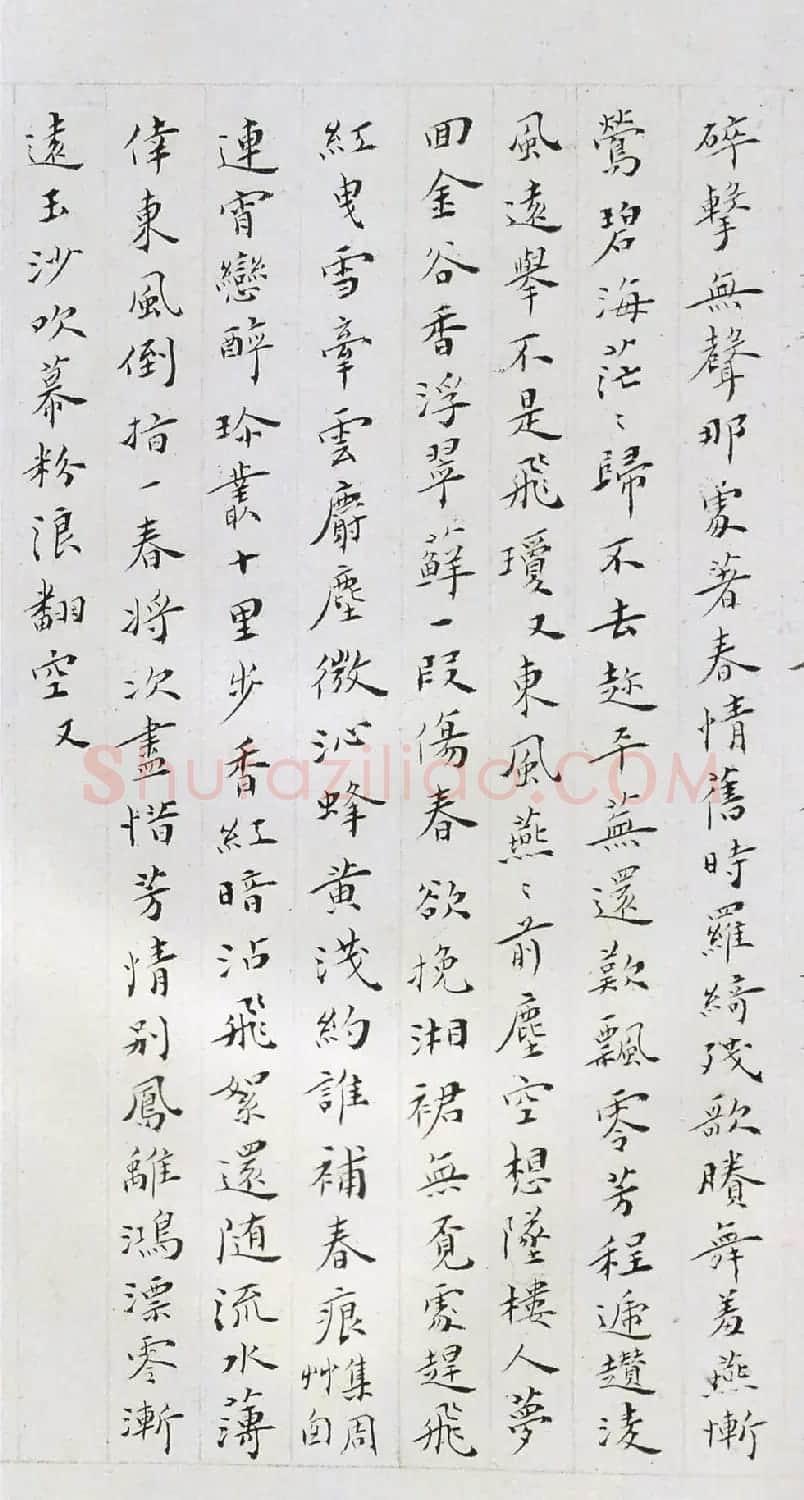 碎擊無聲那處著春情舊時羅綺殘歌賸舞羞燕慚
鶯碧海茫〻歸不去趂平蕪還歎飄零芳程遞趲淩
風遠舉不是飛瓊又東風燕〻前塵空想墜樓人夢
囬金谷香浮翠蘚一段傷春欲挽湘裙無覓處趕飛
紅曳雪牽雲麝塵微沁蜂黃淺約誰補春痕集周艸囪
連宵戀醉珍叢十里步香紅暗沾飛絮還随流水薄
倖東風倒指一春將次盡惜芳情別鳳離鴻漂零漸
遠玉沙吹幕粉浪翻空又
Shufaziliao.COM